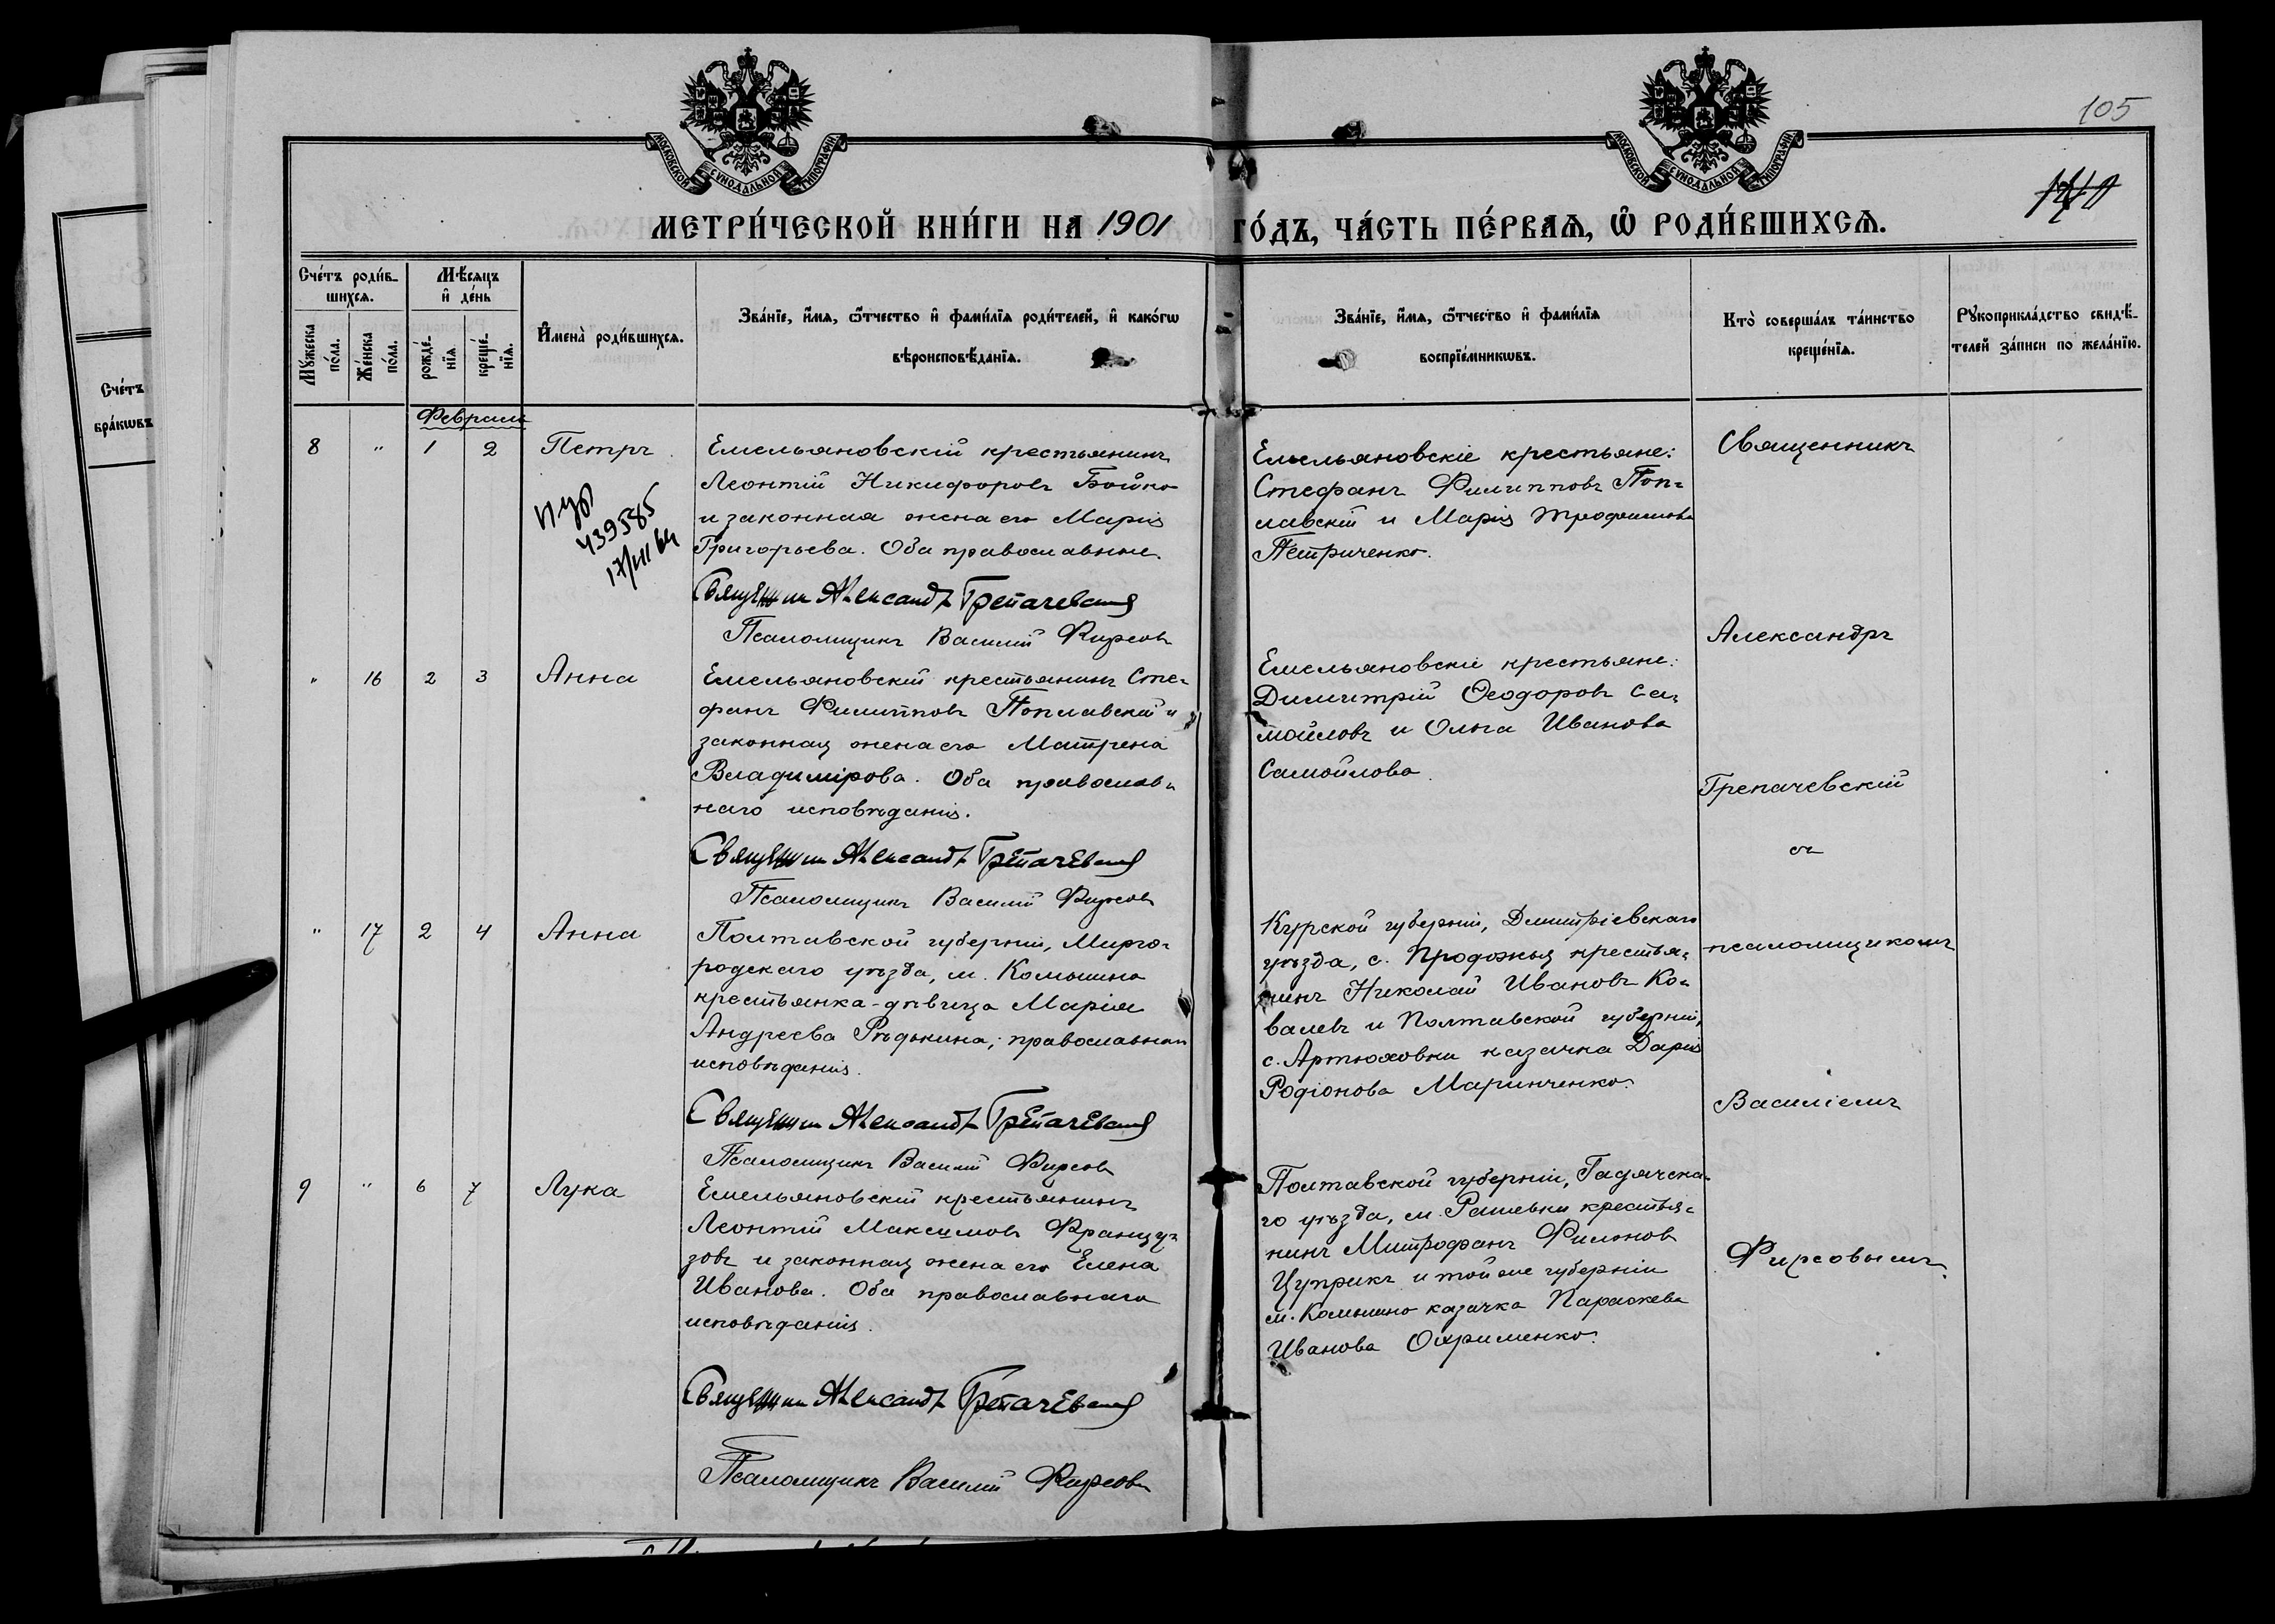 МОСКОВСКОЙ СѴНОДАЛЬНОЙ ТИПОГРАФІИ
МОСКОВСКОЙ СѴНОДАЛЬНОЙ ТИПОГРАФІИ
105
МЕТРИ́ЧЕСКОЙ КНИ́ГИ НА 1901 ГО́ДЪ, ЧА́СТЬ ПЕ́РВАѦ, Ѡ҆ РОДИ́ВШИХСѦ.
Счéтъ
брáкѡвъ
Счéтъ роди́в-
шихсѧ.
Мꙋжеска
пóла.
Жéнска
пóла.
Мѣ́сѧцъ
и҆ дéнь
рождé-
нїѧ
крещé-
нїѧ.
И҆менà роди́вшихсѧ.
Звáнїе, и҆́мѧ, ѻ҆́тчество и҆ фами́лїѧ роди́телей, и҆ какóгѡ
вѣроисповѣ́данїѧ.
Звáнїе, и҆́мѧ, ѻ҆́тчество и҆ фами́лїѧ
воспрїéмникѡвъ.
Ктò совершáлъ тáинство
крещéнїѧ.
Рꙋкоприклáдство свидѣ́-
телей зáписи по желáнїю.
Февраль
8 " 1 2 Петръ
439585
Емельяновскій крестьянинъ
Леонтій Никифоровъ Бойко
и законная жена его Марія
Григорьева. Оба православные.
Священникъ Александръ Грепачевскій
Псаломщикъ Василій Фирсовъ
Емельяновскіе крестьяне:
Стефанъ Филипповъ Поп=
лавскій и Марія Трофимова
Петриченко.
Священникъ
Александръ
Грепачевскій
съ
псаломщикомъ
Василіемъ
Фирсовымъ.
" 16 2 3 Анна
Емельяновскій крестьянинъ Сте=
фанъ Филипповъ Поплавскій и
законная жена его Матрена
Владимірова. Оба православ=
наго исповѣданія.
Священникъ Александръ Грепачевскій
Псаломщикъ Василій Фирсовъ
Емельяновскіе крестьяне:
Димитрій Ѳеодоровъ Са=
мойловъ и Ольга Иванова
Самойлова.
" 17 2 4 Анна
Полтавской губерніи, Мирго=
родскаго уѣзда, м. Комышна
крестьянка-дѣвица Марія
Андреева Рѣдькина, православнаго
исповѣданія.
Священникъ Александръ Грепачевскій
Псаломщикъ Василій Фирсовъ
Курской губерніи, Дмитріевскаго
уѣзда, с. крестья=
нинъ Николай Ивановъ Ко=
валевъ и Полтавской губерніи,
с. Артюховки казачка Дарія
Родіонова Маринченко.
9 " 6 7 Лука
Емельяновскій крестьянинъ
Леонтій Максимовъ Францу=
зовъ и законная жена его Елена
Иванова. Оба православнаго
исповѣданія.
Священникъ Александръ Грепачевскій
Псаломщикъ Василій Фирсовъ
Полтавской губерніи, Гадячска=
го уѣзда, м. Рашевки крестья=
нинъ Митрофанъ Филоновъ
Цуприкъ и той же губерніи
м. Комышно казачка Параскева
Иванова Охрименко.